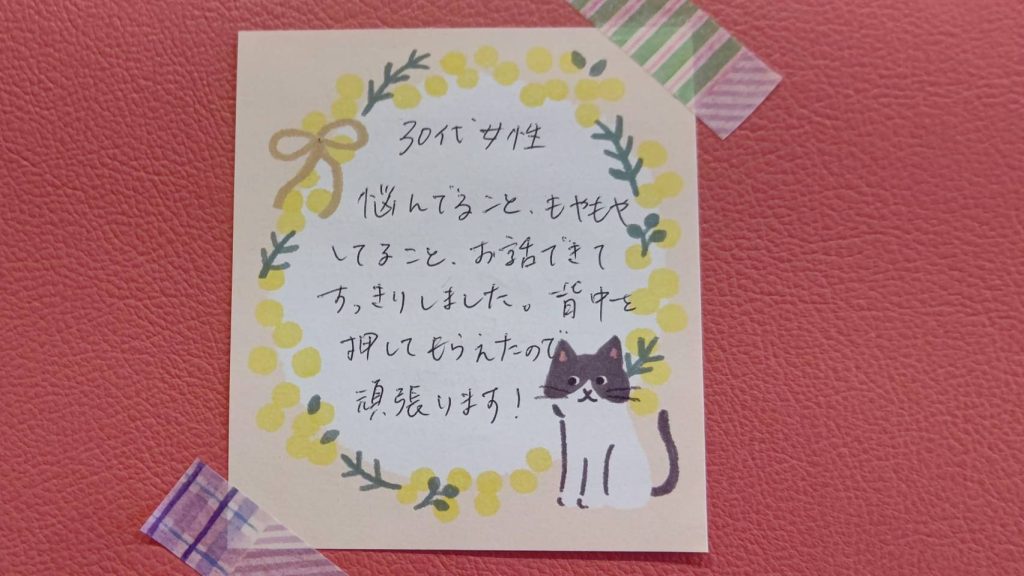 30代女性
悩んでること、もやもや
してること、お話できて
すっきりしました。背中を
押してもらえたので
頑張ります!